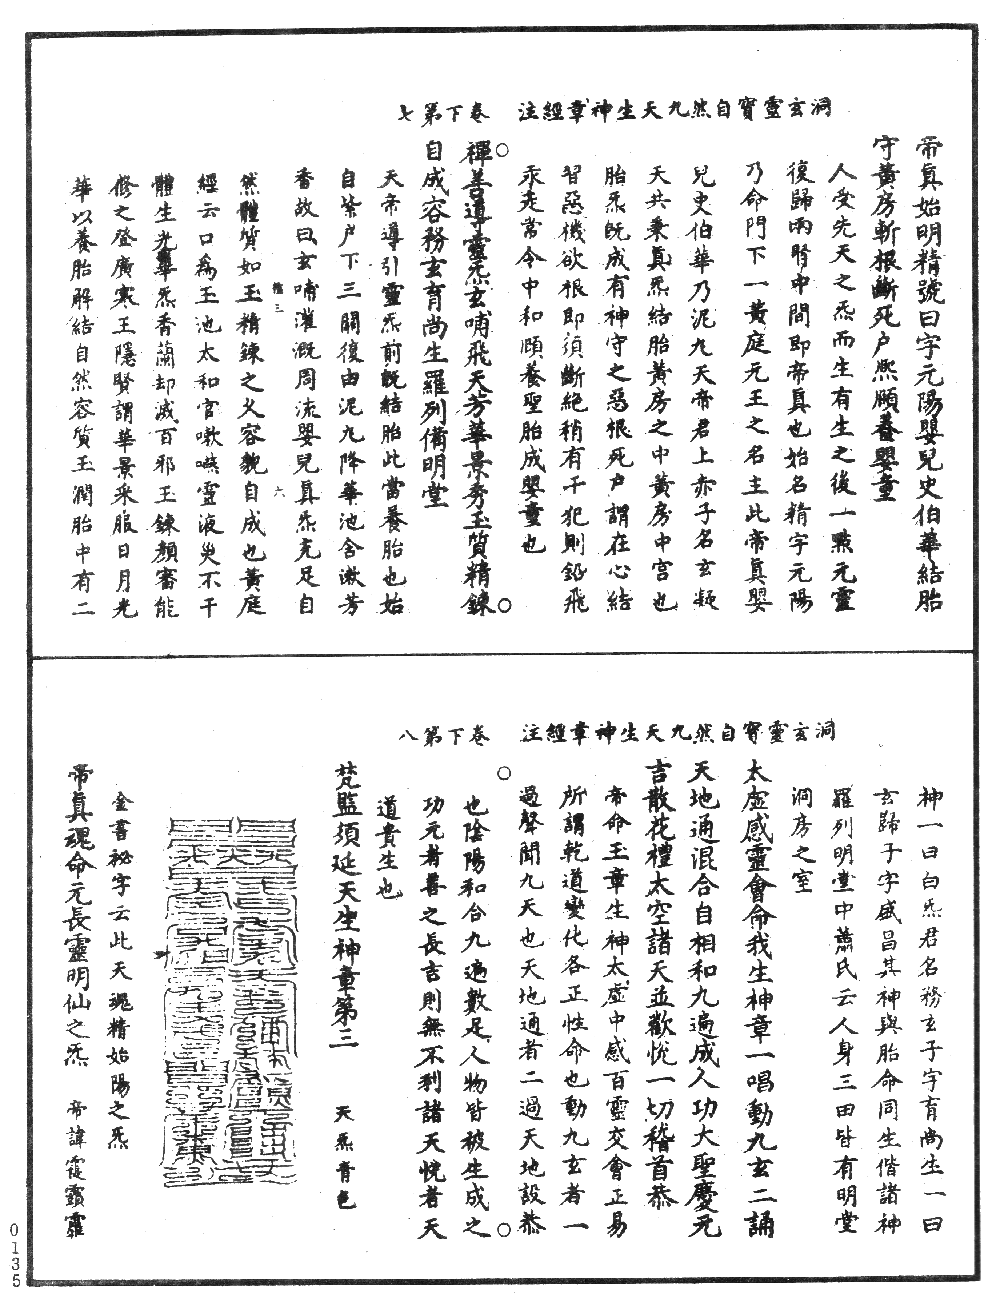 洞玄靈寶自然九天生神章經注　卷下第七
帝真始明精號曰字元陽嬰兒史伯華結胎
守黃房斬根斷死户熙頤養嬰童
人受先天之炁而生有生之後一點元靈
復歸兩腎中間即帝真也始名精字元陽
乃命門下一黃庭元王之名主此帝真嬰
兒史伯華乃泥丸天帝君上赤子名玄凝
天共秉真炁結胎黃房之中黃房中宮也
胎炁既成有神守之惡根死户謂在心結
習惡機欲根即須斷絕稍有干犯則鉛飛
汞走常令中和頤養聖胎成嬰童也
禪善導靈炁玄哺飛天芳華景秀玉質精鍊
自成容務玄育尚生羅列備明堂
天帝導引靈炁前既結胎此當養胎也始
自紫户下三關復由泥丸降華池含漱芳
香故曰玄哺灌溉周流嬰兒真炁充足自
三　六
然體質如玉精鍊之久容貌自成也黃庭
經云口為玉池太和官嗽嚥靈液災不干
體生光華炁香蘭却滅百邪玉鍊顏審能
修之登廣寒王隱賢謂華景采服日月光
華以養胎解結自然容質玉潤胎中有二
洞玄靈寶自然九天生神章經注　卷下第八
神一曰白炁君名務玄子字育尚生一曰
玄歸子字盛昌其神與胎命同生偕諸神
羅列明堂中蕭氏云人身三田皆有明堂
洞房之室
太虛感靈會命我生神章一唱動九玄二誦
天地通混合自相和九遍成人功大聖慶元
吉散花禮太空諸天並歡悅一切稽首恭
帝命玉章生神太虛中感百靈交會正易
所謂乾道變化各正性命也動九玄者一
過聲聞九天也天地通者二過天地設恭
也陰陽和合九遍數足人物皆被生成之
功元者善之長吉則無不利諸天悅者天
道貴生也
梵監須延天生神章第三　天炁青色
金書祕字云此天魂精始陽之炁
帝真魂命元長靈明仙之炁　帝諱霐
0135